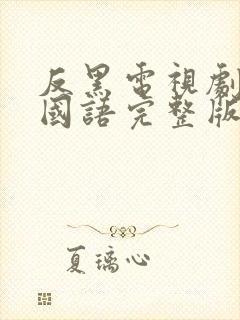 反黑電視劇
國語完整版
夏璃心